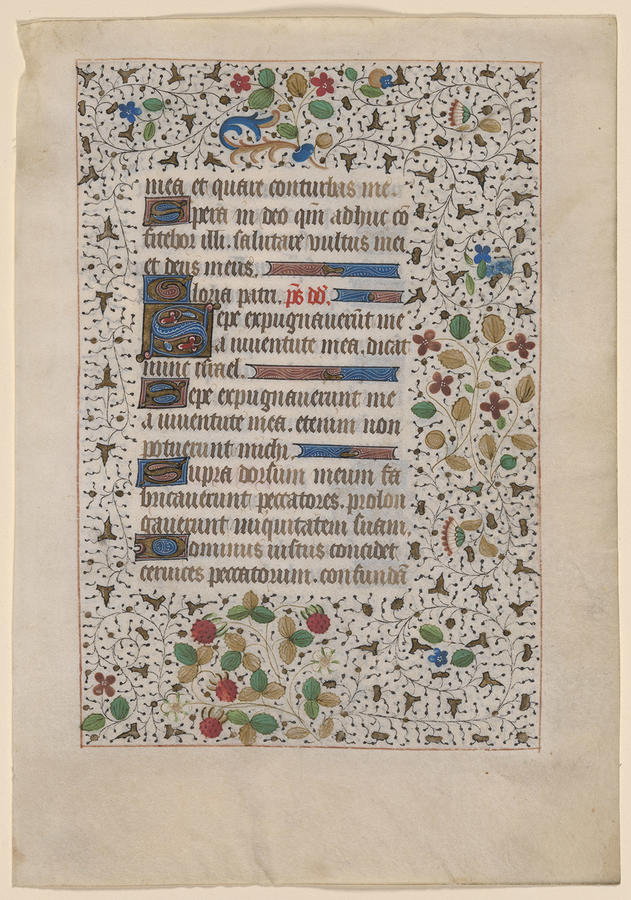 mea et quare conturbas me.
Spera in deo qm̄ adhuc cō
fitebor illi. salutare vultus mei
et deus meus.
Gloria patri. ps̄ dd̄.
Sepe expugnauerūt me
a iuuentute mea. dicat
nunc israel.
Sepe expugnauerunt me
a iuuentute mea. etenim non
potuerunt michi.
Supra dorsum meum fa
bricauerunt peccatores. prolon
gauerunt iniquitatem suam.
Dominus iustus concidet
ceruices peccatorum. confundā